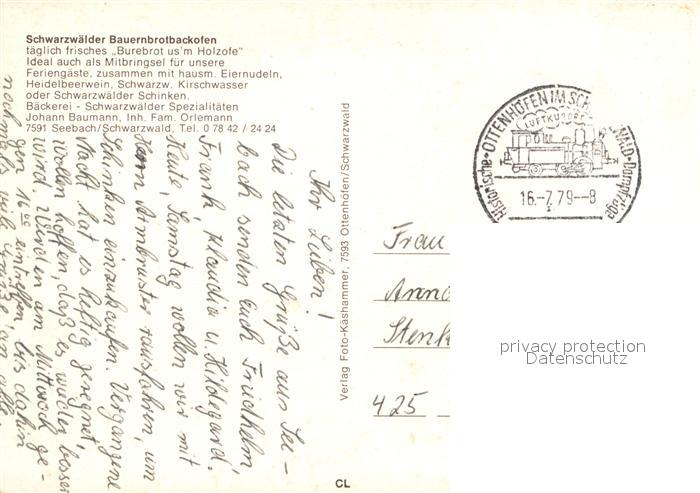 Schwarzwälder Bauernbrotbackofen
täglich frisches „Burebrot us'm Holzofe"
Ideal auch als Mitbringsel für unsere
Feriengäste, zusammen mit hausm. Eiernudeln,
Heidelbeerwein, Schwarzw. Kirschwasser
oder Schwarzwälder Schinken.
Bäckerei - Schwarzwälder Spezialitäten
Johann Baumann, Inh. Fam. Orlemann
7591 Seebach/Schwarzwald, Tel. 0 78 42 / 24 24
Ihr Lieben!
Die letzten Grüße aus See-
bach senden euch Friedhelm,
Frank, Klaudia u. Hildegard.
Heute, Samstag wollen wir mit
Herrn Armbruster rausfahren, um
Schinken einzukaufen. Vergangene
Nacht hat es heftig geregnet,
wollen hoffen, daß es wieder besser
wird. Würden am Mittwoch ge-
gen 16 00 eintreffen bis dahin
nochmals viele Grüße an alle.
Verlag Foto-Käshammer, 7593 Ottenhöfen/Schwarzwald
CL
OTTENHÖFEN IM SCH WALD
LUFTKURORT
Historische Dampfzüge
16.-7.79--8
Frau
Anna
Stenk
425
privacy protection
Datenschutz